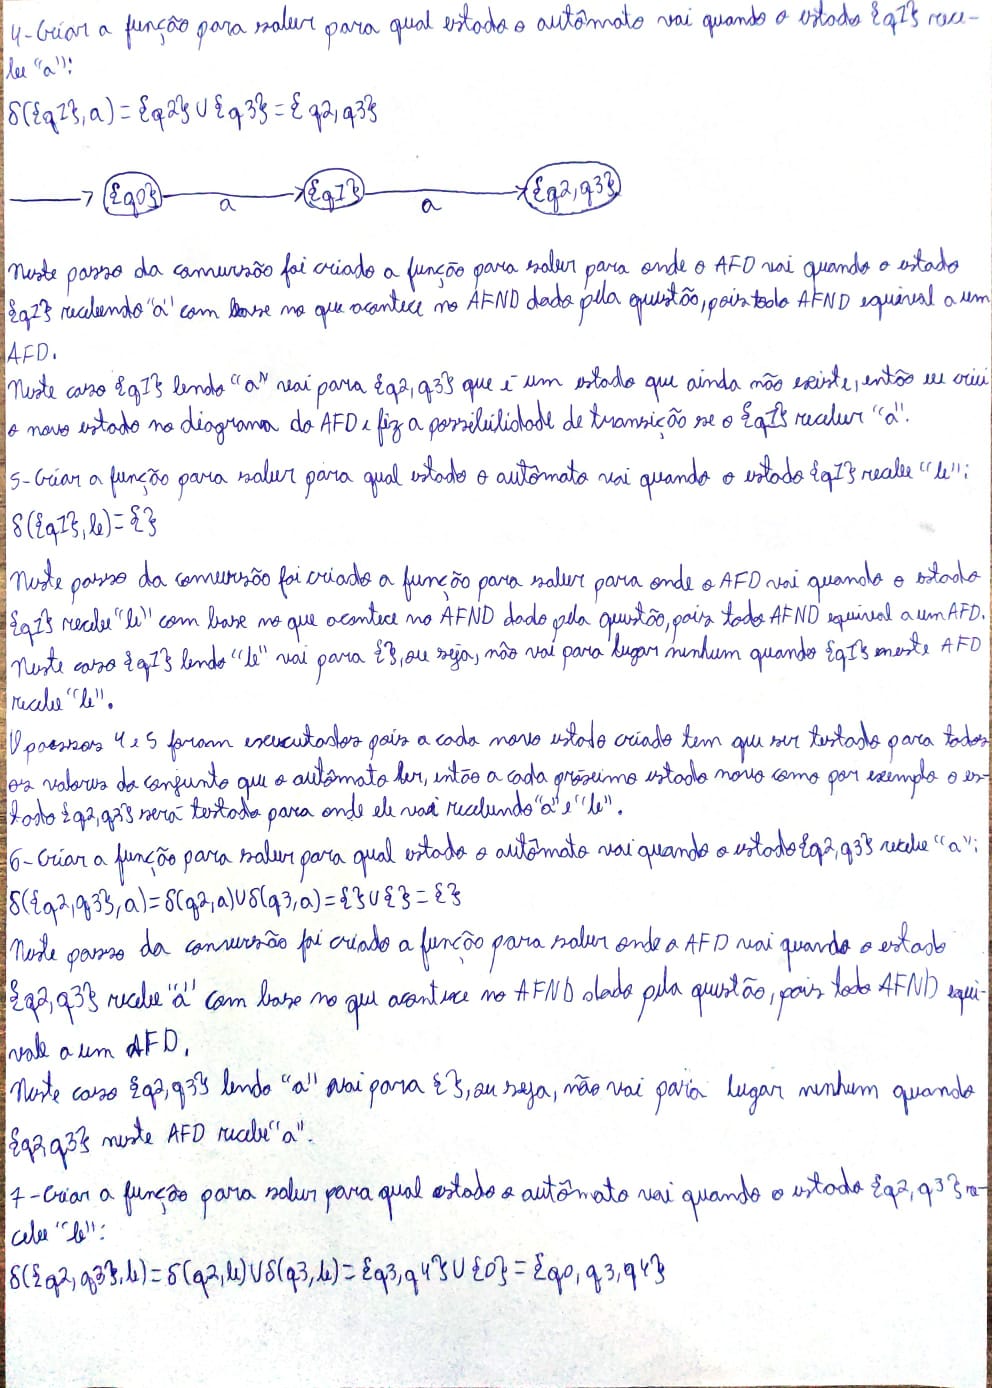 4-Criar a função para saber para qual estado o autômato vai quando o estado {q1} rece-
be "a":
δ({q1},a)={q2}∪{q3}={q2,q3}
{q0} a {q1} a {q2,q3}
Neste passo da conversão foi criado a função para saber para onde o AFD vai quando o estado
{q1} recebendo "a" com base no que acontece no AFND dado pela questão, pois todo AFND equival a um
AFD.
Neste caso {q1} lendo "a" vai para {q2,q3} que é um estado que ainda não existe, então eu criei
o novo estado no diagrama do AFD e fiz a possibilidade de transição se o {q1} receber "a".
5-Criar a função para saber para qual estado o autômato vai quando o estado {q1} recebe "b":
δ({q1},b)={}
Neste passo da conversão foi criado a função para saber para onde o AFD vai quando o estado
{q1} recebe "b" com base no que acontece no AFND dado pela questão, pois todo AFND equival a um AFD.
Neste caso {q1} lendo "b" vai para {}, ou seja, não vai para lugar nenhum quando {q1} neste AFD
recebe "b".
O passos 4 e 5 foram executados pois a cada novo estado criado tem que ser testado para todos
os valores do conjunto que o autômato ler, então a cada próximo estado novo como por exemplo o es-
tado {q2,q3} será testado para onde ele vai recebendo "a" e "b".
6-Criar a função para saber para qual estado o autômato vai quando o estado {q2,q3} recebe "a":
δ({q2,q3},a)=δ(q2,a)∪δ(q3,a)={}∪{}={}
Neste passo da conversão foi criado a função para saber onde o AFD vai quando o estado
{q2,q3} recebe "a" com base no que acontece no AFND dado pela questão, pois todo AFND equi-
vale a um AFD.
Neste caso {q2,q3} lendo "a" vai para {}, ou seja, não vai para lugar nenhum quando
{q2,q3} neste AFD recebe "a".
7-Criar a função para saber para qual estado o autômato vai quando o estado {q2,q3} re-
cebe "b":
δ({q2,q3},b)=δ(q2,b)∪δ(q3,b)={q3,q4}∪{0}={q0,q3,q4}